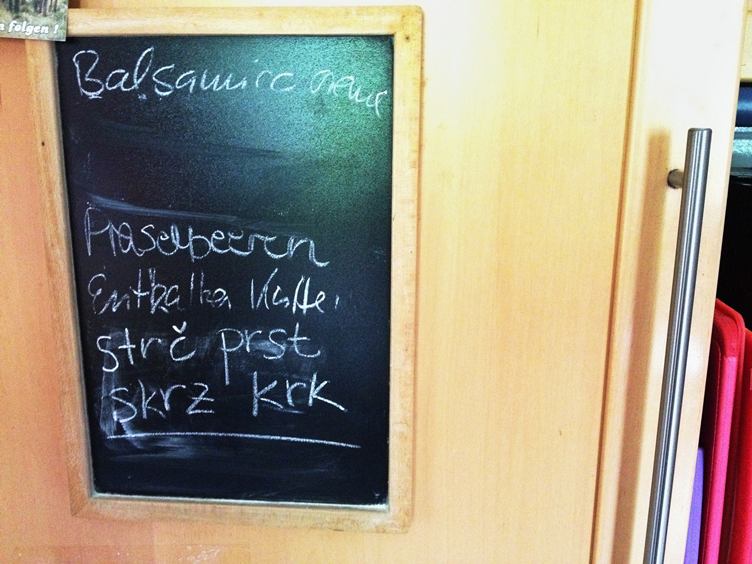 n folgen !
Balsamico creme
Praselbeeren
Entkalker Kaffee
strč prst
skrz krk